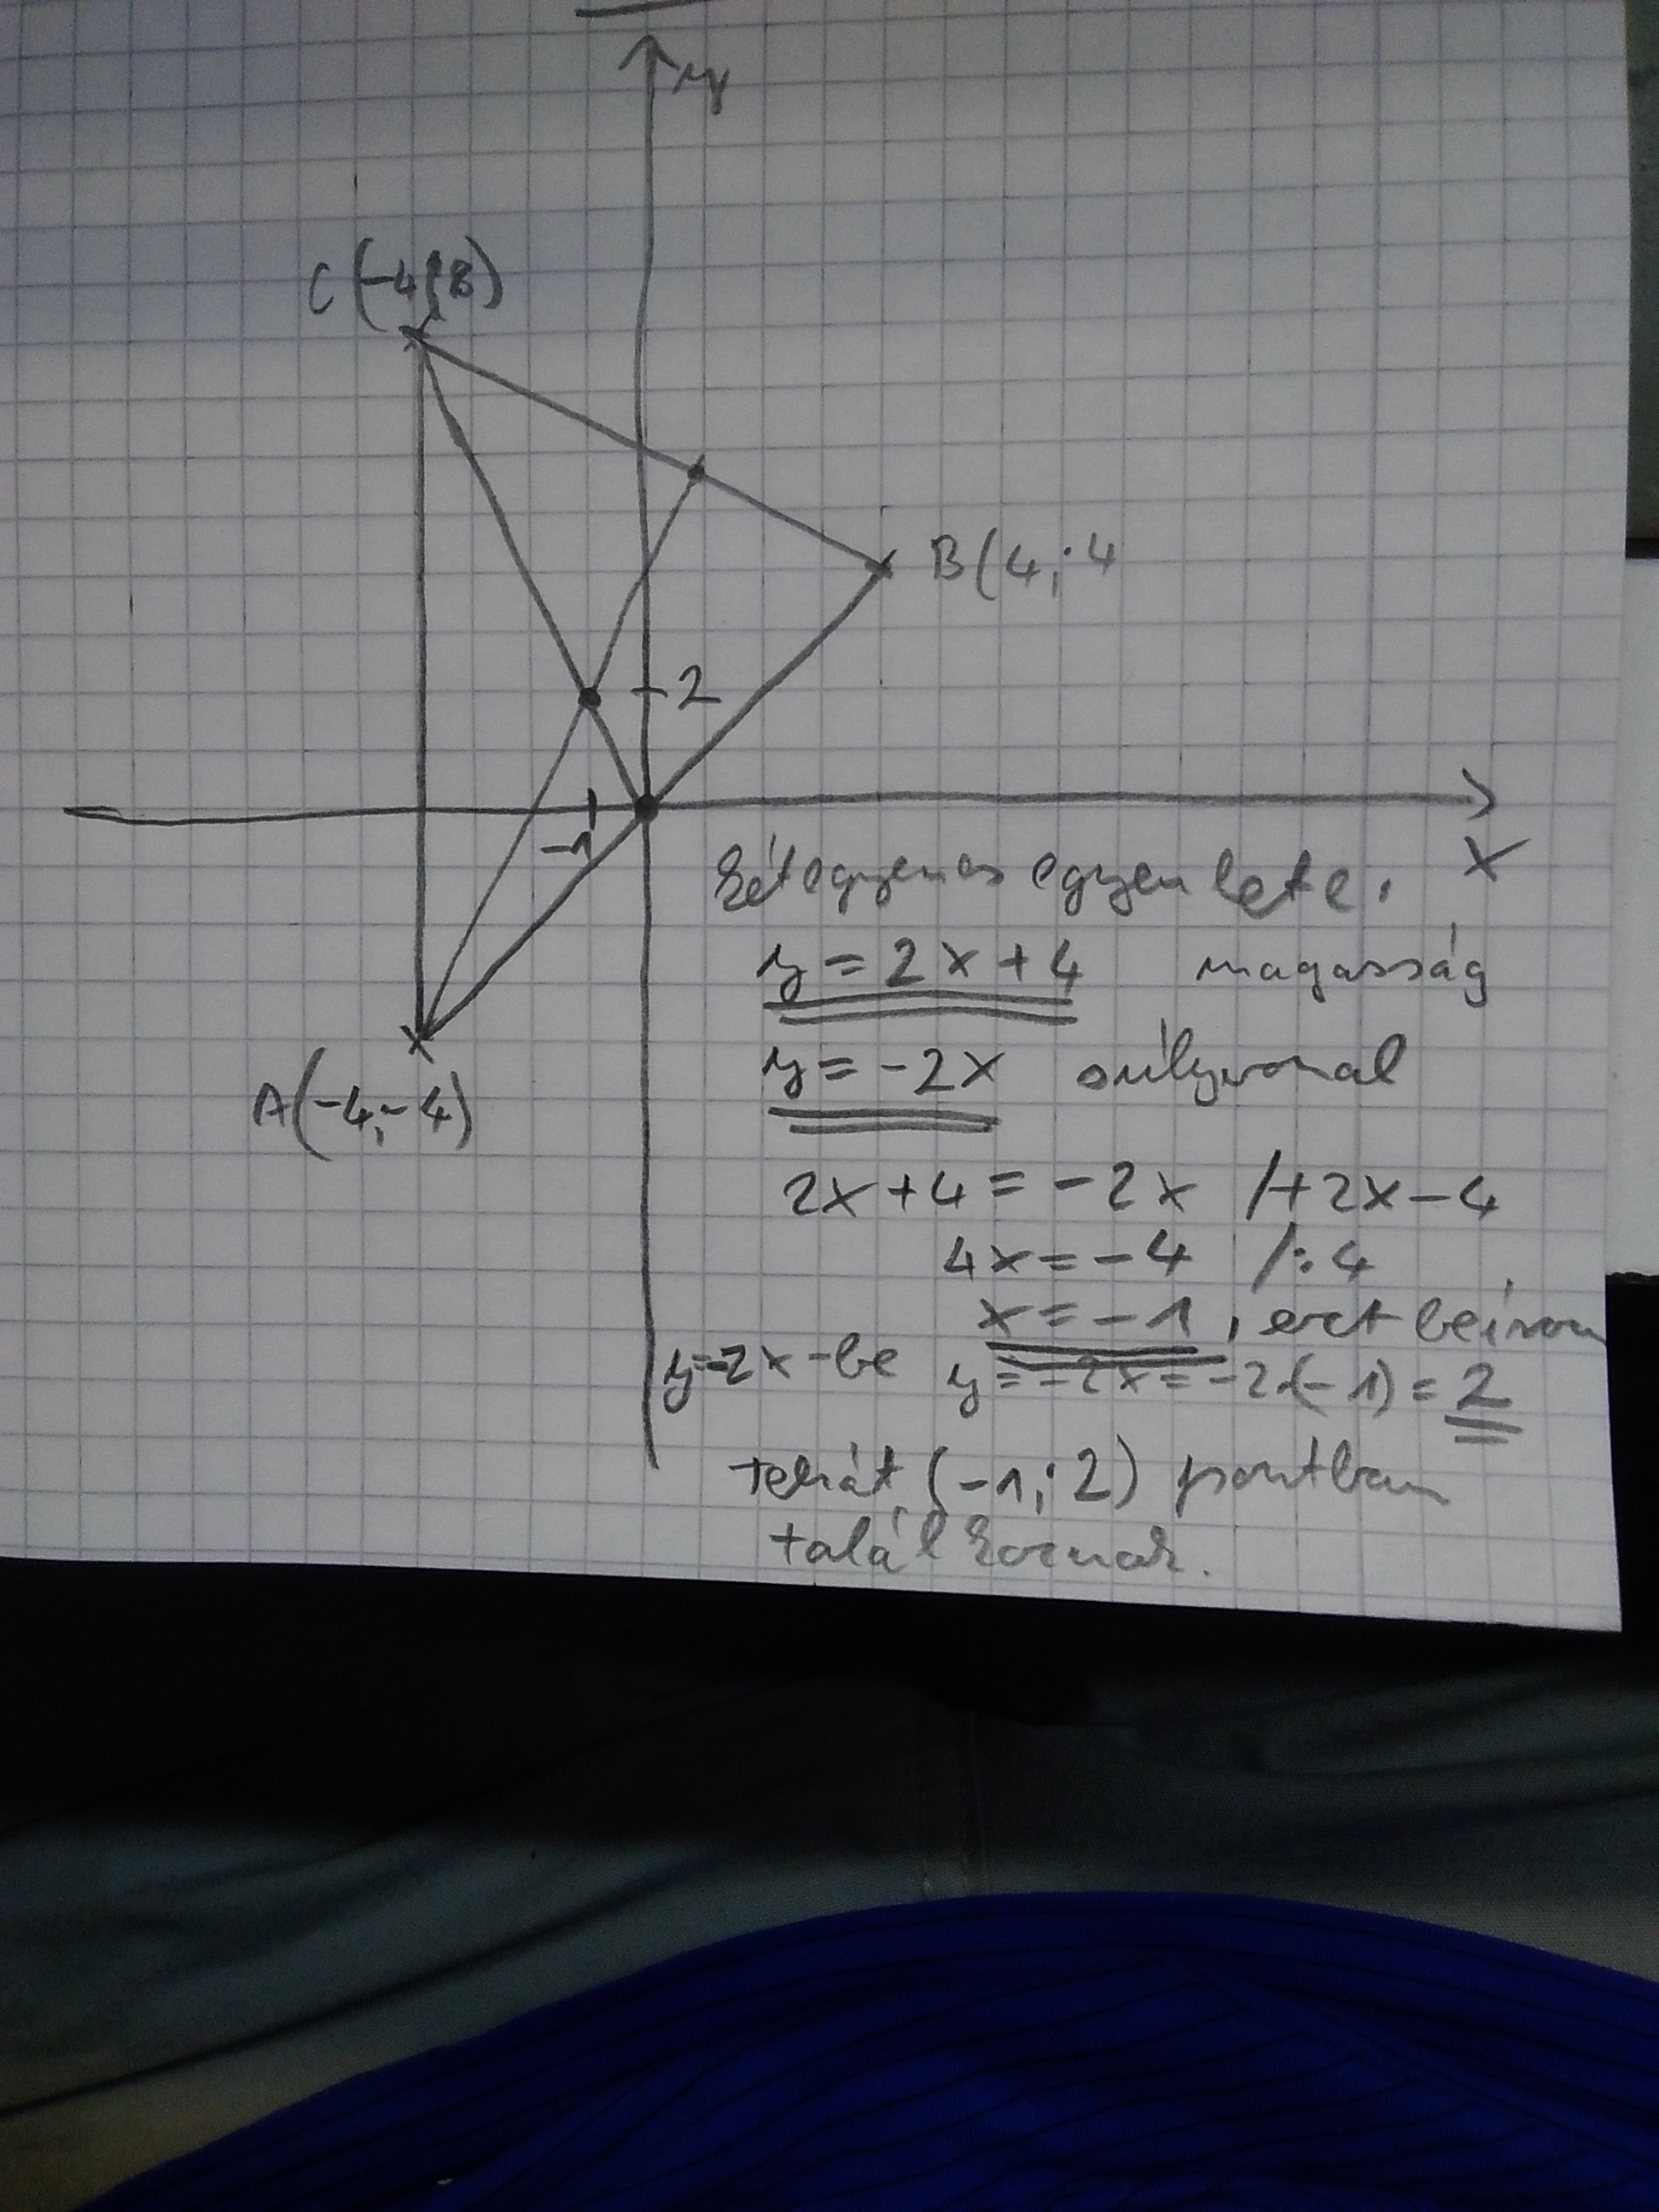 y
C(-4;8)
B(4;4
2
-1
x
A(-4;-4)
két egyenes egyenlete.
y = 2x + 4 magasság
y = -2x súlyvonal
2x + 4 = -2x /+2x-4
4x = -4 /:4
x = -1, ezt beírom
y=-2x-be y = -2x = -2·(-1) = 2
tehát (-1;2) pontban
találkoznak.